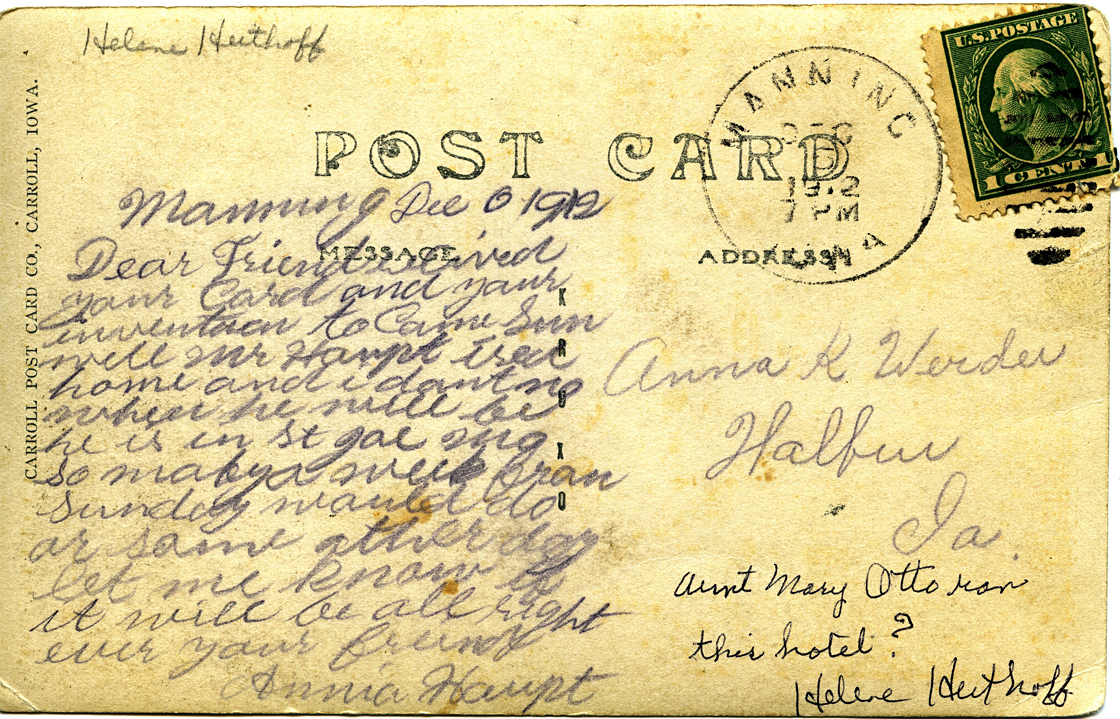 Helene Heithoff
U.S. POSTAGE
1 CENT 1
MANNING
DEC
6
1912
7 PM
IOWA
POST CARD
CARROLL POST CARD CO., CARROLL, IOWA.
MESSAGE
ADDRESS
KRUXO
Manning Dec 6 1912
Dear Friend recived
your Card and your
invention to Came Sun
well Mr Haupt isent
home and i dant no
when he will be
he is in St Joe Mo
so maby a week fran
Sunday would do
or some other day
let me know if
it will be all right
ever your friend
Annia Haupt
Anna K Werder
Halbur
Ia.
Aunt Mary Otto ran
this hotel?
Helene Heithoff